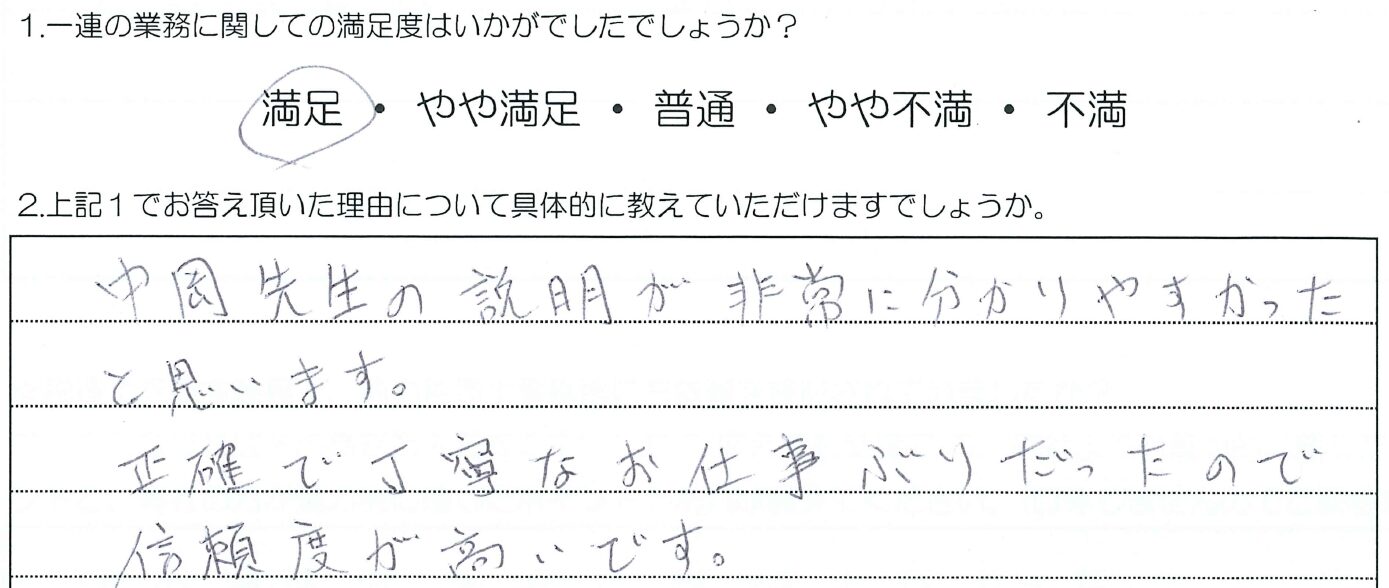 1.一連の業務に関しての満足度はいかがでしたでしょうか？
満足 ・ やや満足 ・ 普通 ・ やや不満 ・ 不満
2.上記１でお答え頂いた理由について具体的に教えていただけますでしょうか。
中岡先生の説明が非常に分かりやすかった
と思います。
正確で丁寧なお仕事ぶりだったので
信頼度が高いです。